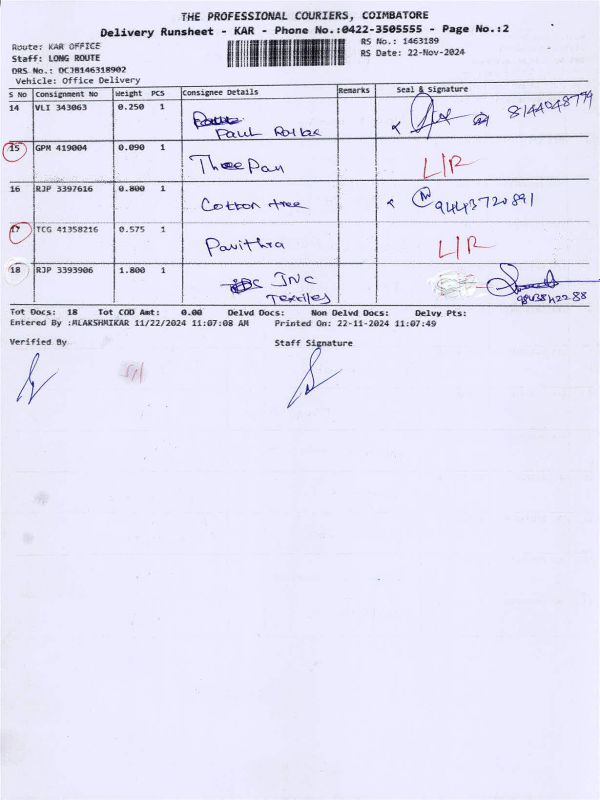 THE PROFESSIONAL COURIERS, COIMBATORE
Delivery Runsheet - KAR - Phone No.:0422-3505555 - Page No.:2
Route: KAR OFFICE
RS No.: 1463189
Staff: LONG ROUTE
RS Date: 22-Nov-2024
DRS No.: DCJB146318902
Vehicle: Office Delivery
S No Consignment No Weight PCS Consignee Details Remarks Seal & Signature
14 VLI 343063 0.250 1 8144048779
Paul
15 GPM 419004 0.090 1 Three Pan L/R
16 RJP 3397616 0.800 1 Cotton tree 9443720891
17 TCG 41358216 0.575 1 Pavithra L/R
18 RJP 3393906 1.800 1 JNC
Textiles
Tot Docs: 18 Tot COD Amt: 0.00 Delvd Docs: Non Delvd Docs: Delvy Pts:
Entered By :MLAKSHMIKAR 11/22/2024 11:07:08 AM Printed On: 22-11-2024 11:07:49
Verified By Staff Signature